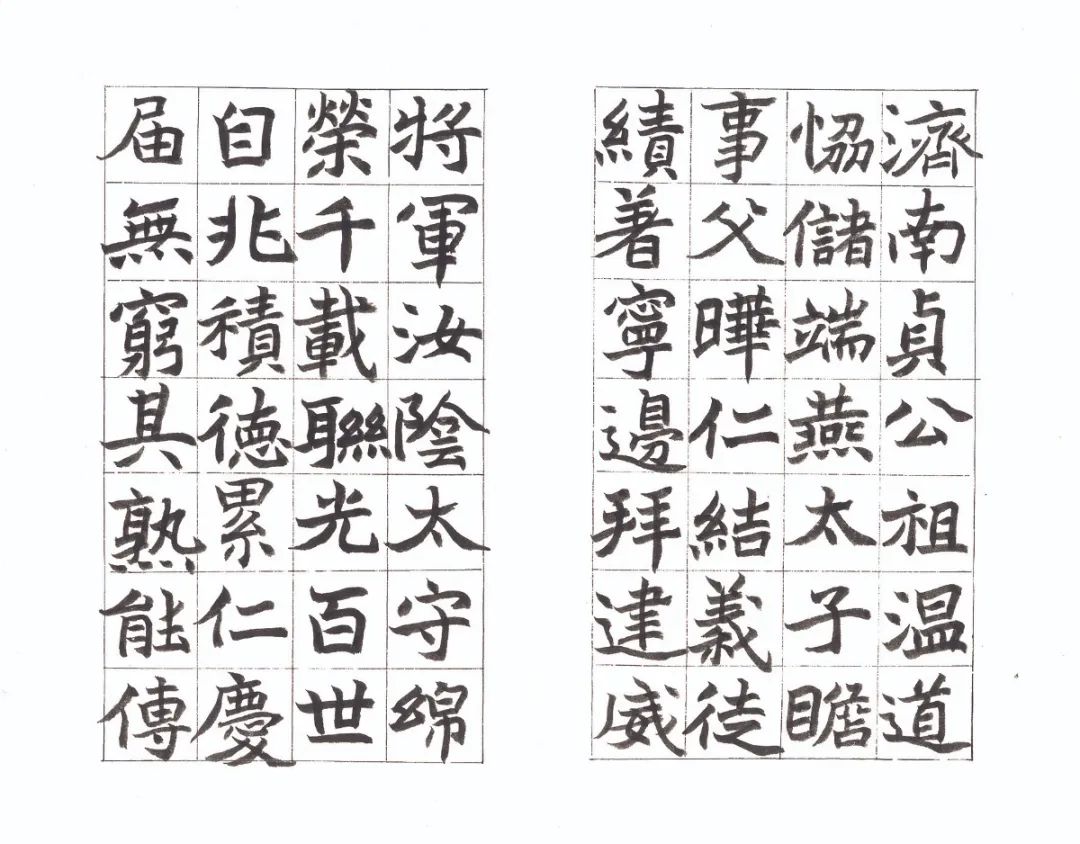 濟南貞公祖温道
恊儲端燕太子瞻
事父曄仁結義徒
績著寧邊拜建威
將軍汝陰太守綿
榮千載聯光百世
自非積德累仁慶
届無窮其熟能傳